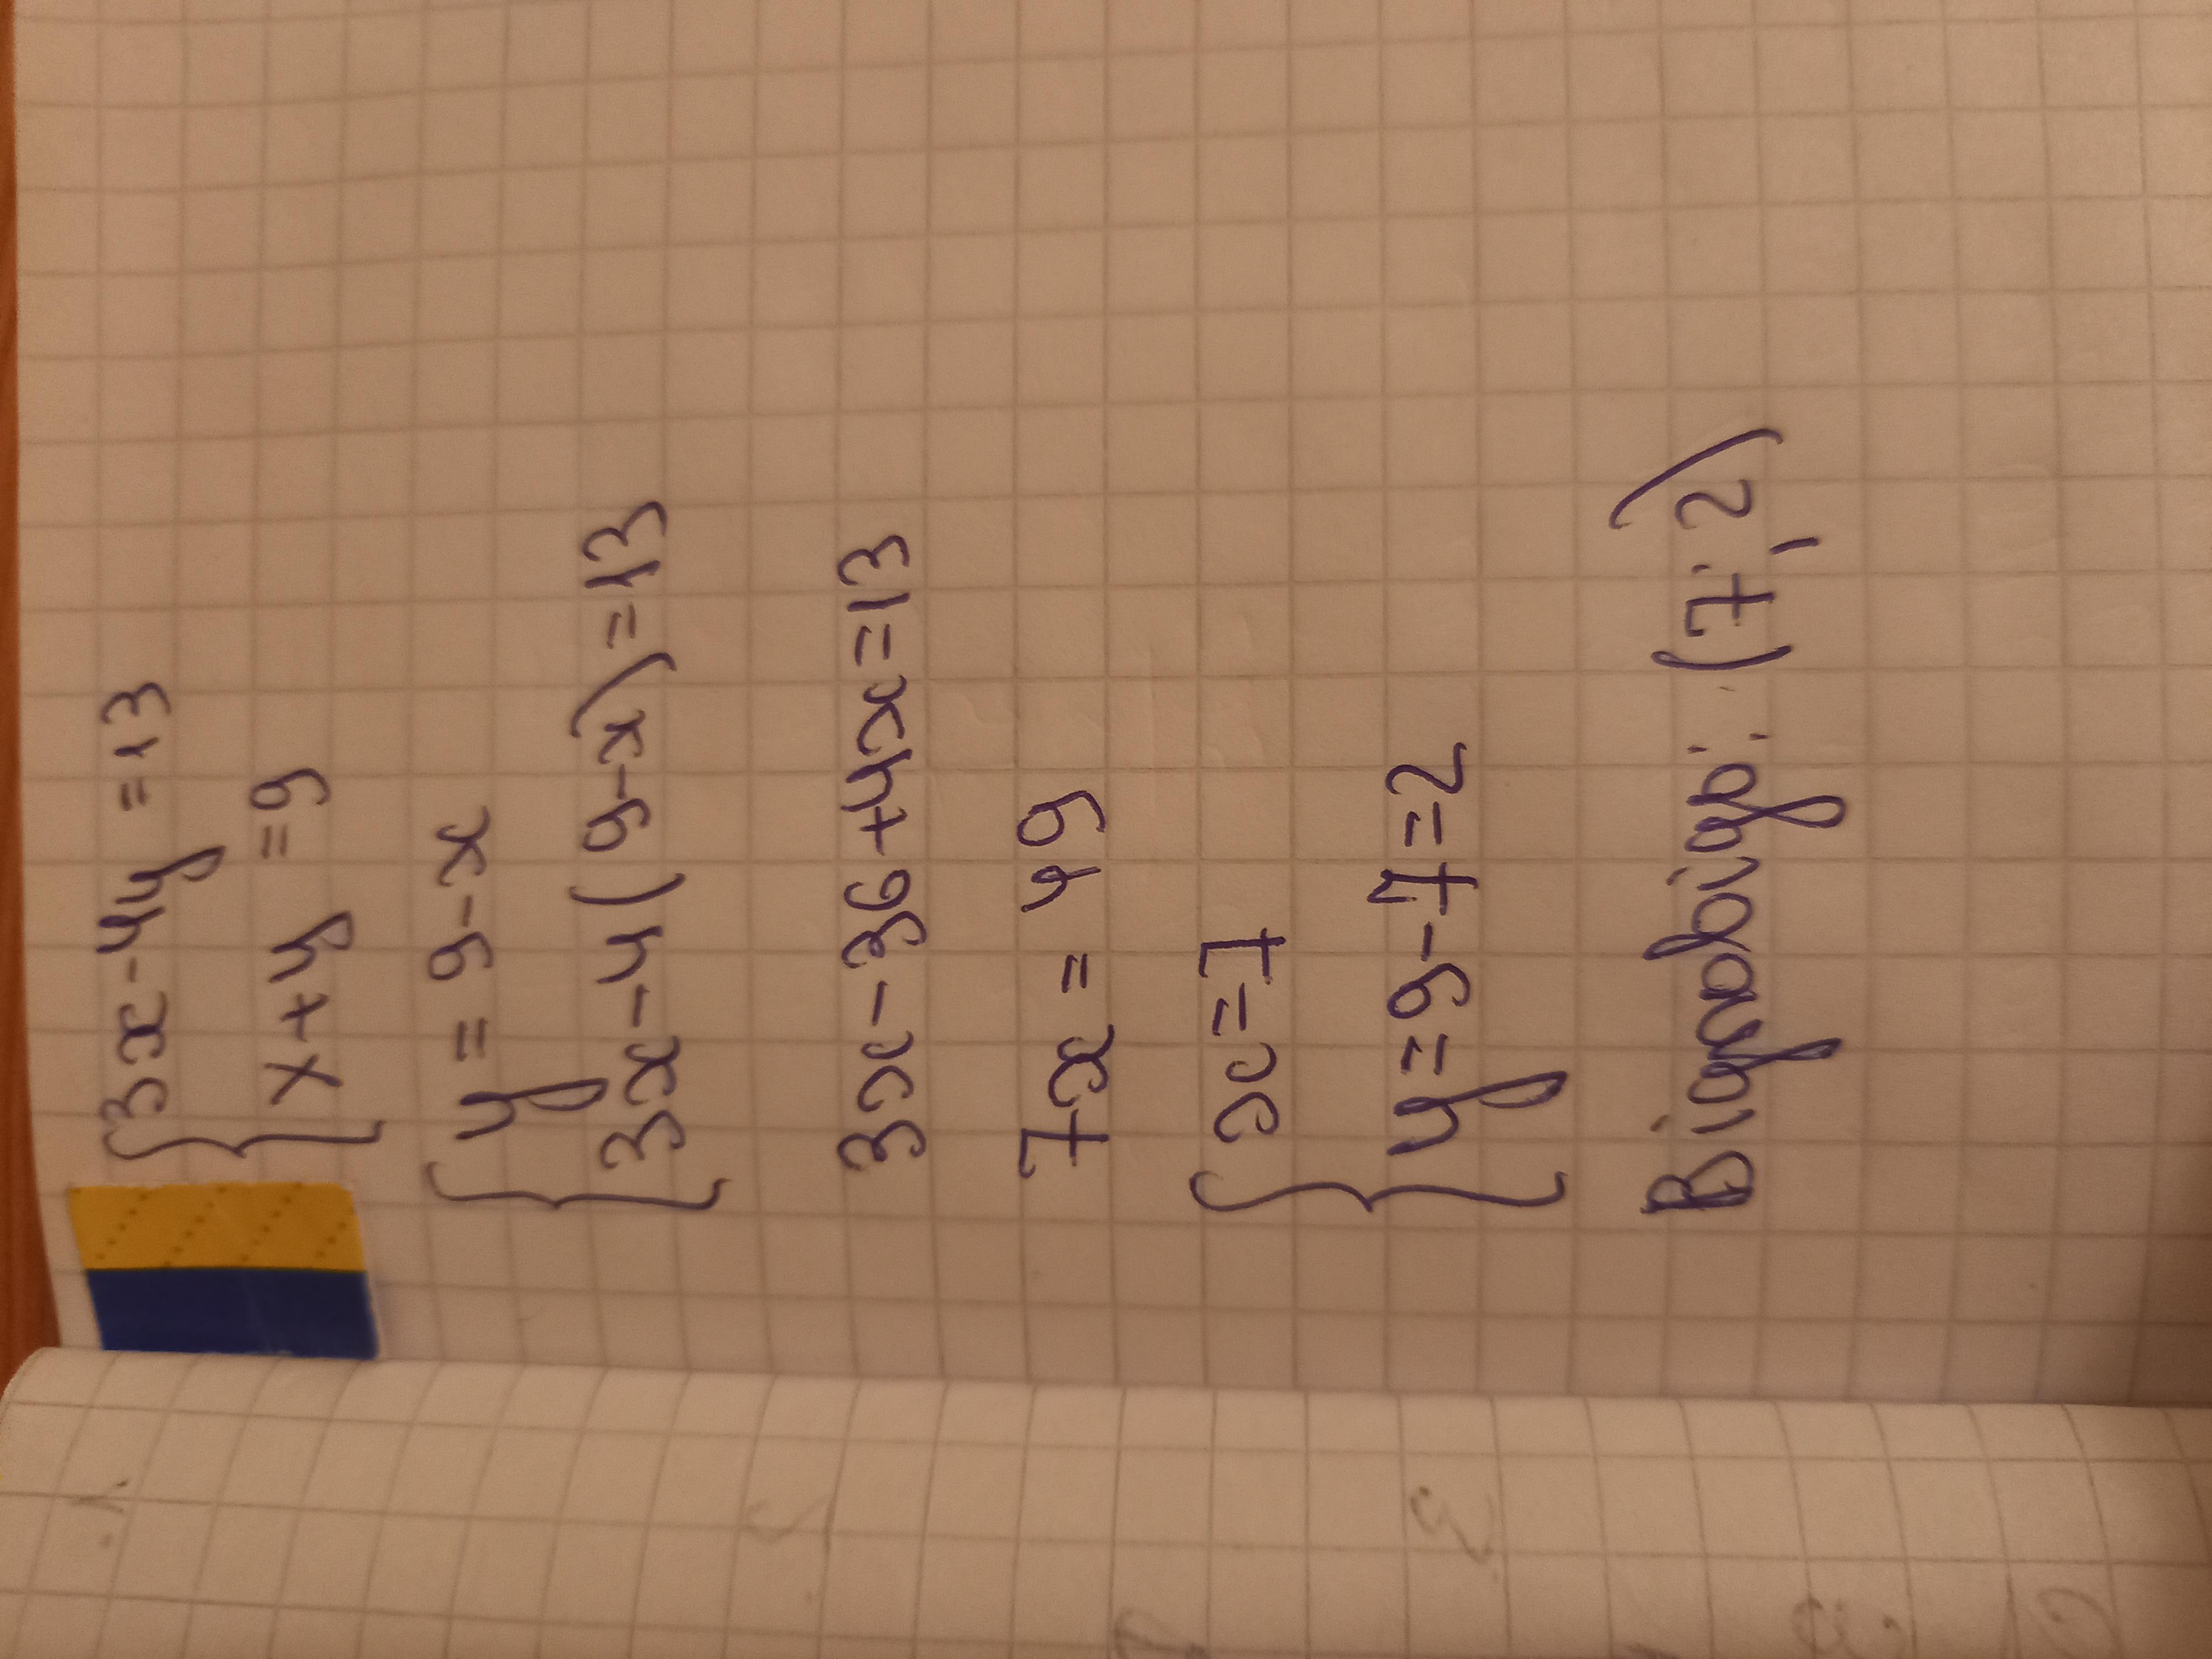 3x-4y=13
x+y=9
y=9-x
3x-4(9-x)=13
3x-36+4x=13
7x=49
x=7
y=9-7=2
Відповідь: (7;2)